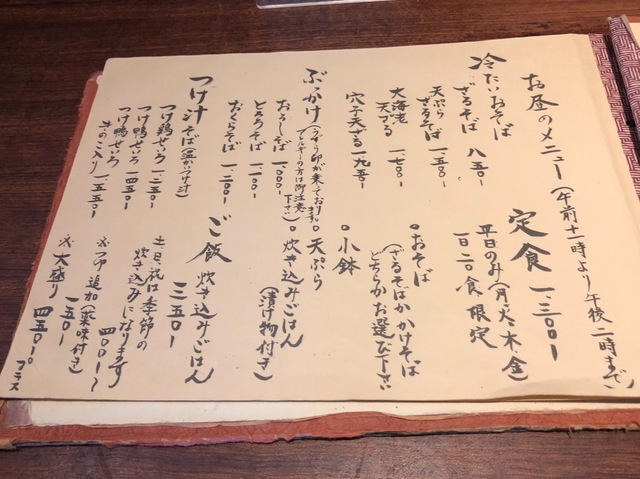 お昼のメニュー(午前十一時より午後二時まで)
冷たいおそば
ざるそば 八五〇-
天ぷら
ざるそば 一、五五〇-
大海老
天ざる 一、七〇〇-
穴子天ざる 一、九五〇-
ぶっかけ(うずら卵が来ております
アレルギーの方は御注意
下さい)
おろしそば 一、〇〇〇-
とろろそば 一、一〇〇-
おくらそば 一、二〇〇-
つけ汁そば(温かいつけ汁)
つけ鶏せいろ 一、二五〇-
つけ鴨せいろ 一、四五〇-
つけ鴨せいろ
きのこ入り 一、五五〇-
定食 一、三〇〇-
平日のみ(月火木金)
一日二〇食限定
おそば
(ざるそばかかけそば
どちらかお選び下さい
小鉢
天ぷら
炊き込みごはん
(漬け物付き)
ご飯 炊き込みごはん
三五〇-
土、日、祝は季節の
炊き込みになります
追加(薬味付き)
一五〇-
※大盛り 四五〇-プラス